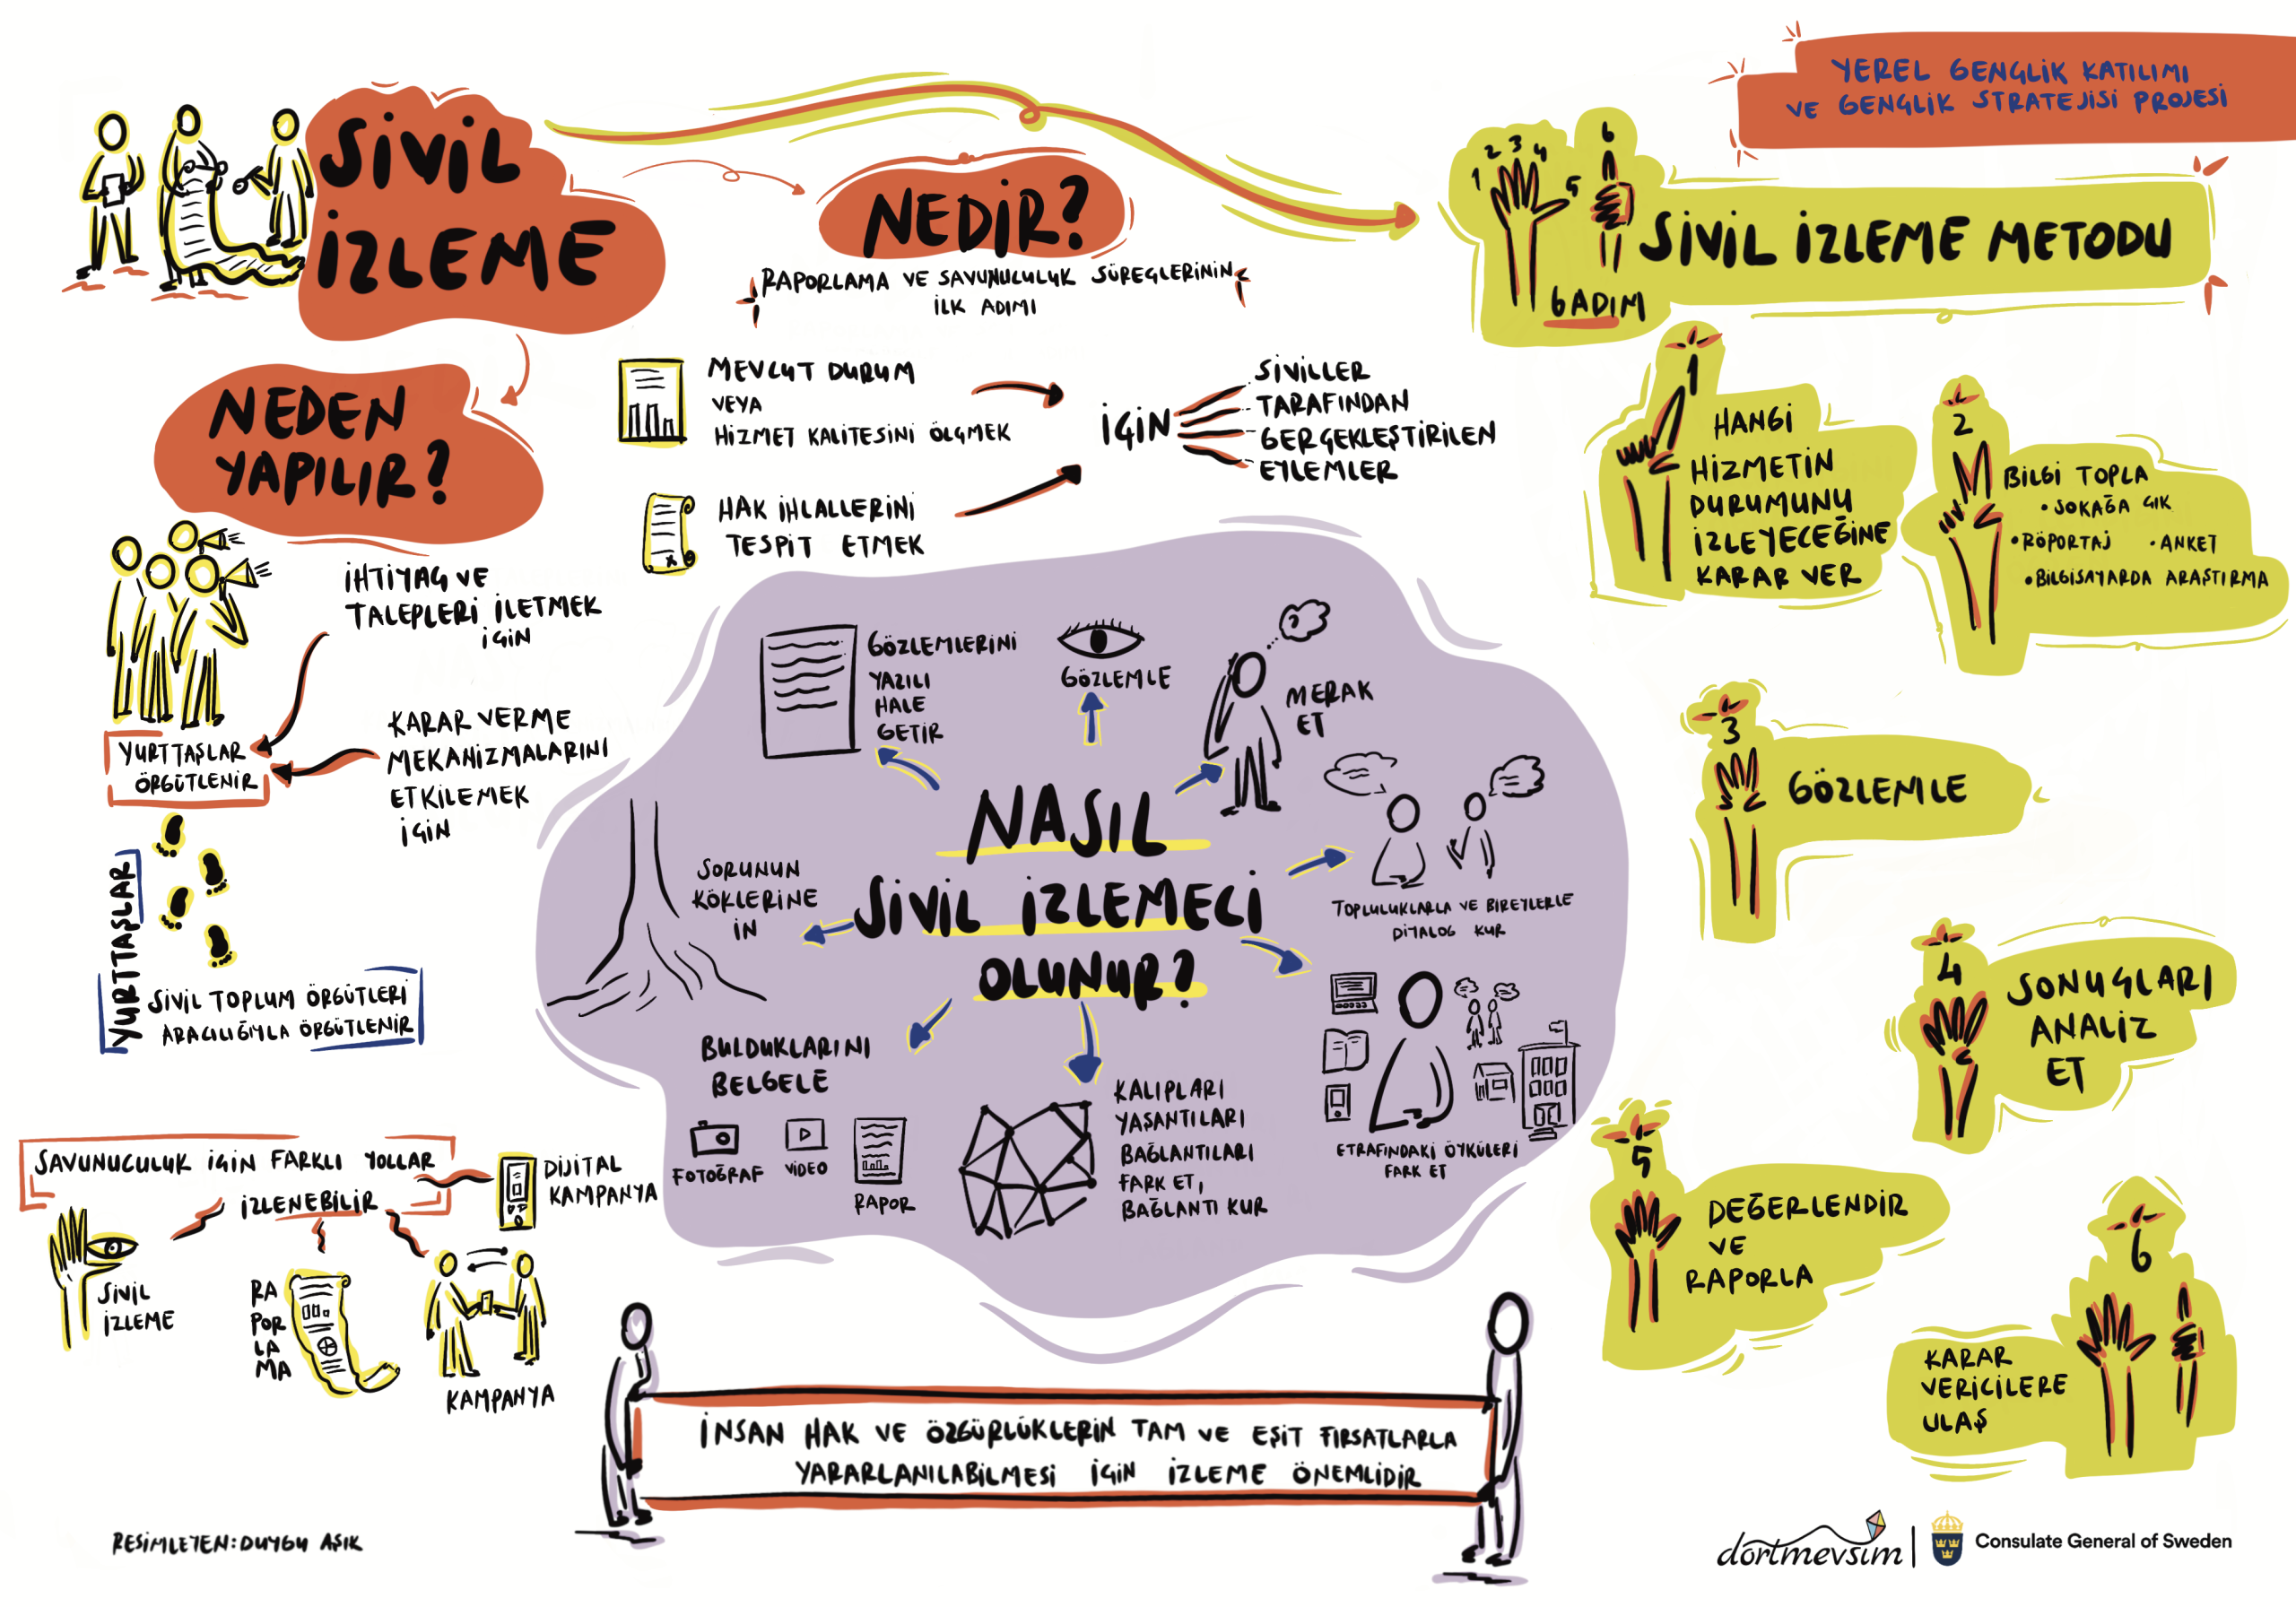 SİVİL
İZLEME
NEDİR?
RAPORLAMA VE SAVUNUCULUK SÜREÇLERİNİN
İLK ADIMI
MEVCUT DURUM
VEYA
HİZMET KALİTESİNİ ÖLÇMEK
HAK İHLALLERİNİ
TESPİT ETMEK
İÇİN
SİVİLLER
TARAFINDAN
GERÇEKLEŞTİRİLEN
EYLEMLER
NEDEN
YAPILIR?
İHTİYAÇ VE
TALEPLERİ İLETMEK
İÇİN
KARAR VERME
MEKANİZMALARINI
ETKİLEMEK
İÇİN
YURTTAŞLAR
ÖRGÜTLENİR
YURTTAŞLAR
SİVİL TOPLUM ÖRGÜTLERİ
ARACILIĞIYLA ÖRGÜTLENİR
SAVUNUCULUK İÇİN FARKLI YOLLAR
İZLENEBİLİR
SİVİL
İZLEME
RA
POR
LA
MA
KAMPANYA
DİJİTAL
KAMPANYA
NASIL
SİVİL İZLEMECİ
OLUNUR?
GÖZLEMLERİNİ
YAZILI
HALE
GETİR
GÖZLEMLE
?
MERAK
ET
TOPLULUKLARLA VE BİREYLERLE
DİYALOG KUR
ETRAFINDAKİ ÖYKÜLERİ
FARK ET
KALIPLARI
YAŞANTILARI
BAĞLANTILARI
FARK ET,
BAĞLANTI KUR
BULDUKLARINI
BELGELE
FOTOĞRAF
VİDEO
RAPOR
SORUNUN
KÖKLERİNE
İN
İNSAN HAK VE ÖZGÜRLÜKLERİN TAM VE EŞİT FIRSATLARLA
YARARLANILABİLMESİ İÇİN İZLEME ÖNEMLİDİR
YEREL GENÇLİK KATILIMI
VE GENÇLİK STRATEJİSİ PROJESİ
1 2 3 4 5 6
6 ADIM
SİVİL İZLEME METODU
1
HANGİ
HİZMETİN
DURUMUNU
İZLEYECEĞİNE
KARAR VER
2
BİLGİ TOPLA
• SOKAĞA ÇIK
• RÖPORTAJ • ANKET
• BİLGİSAYARDA ARAŞTIRMA
3
GÖZLEMLE
4
SONUÇLARI
ANALİZ
ET
5
DEĞERLENDİR
VE
RAPORLA
6
KARAR
VERİCİLERE
ULAŞ
RESİMLEYEN: DUYGU AŞIK
dörtmevsim
Consulate General of Sweden